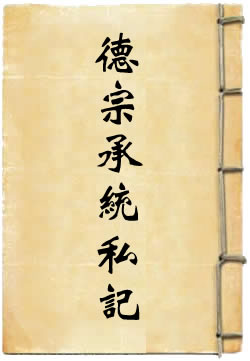 德宗承統私記